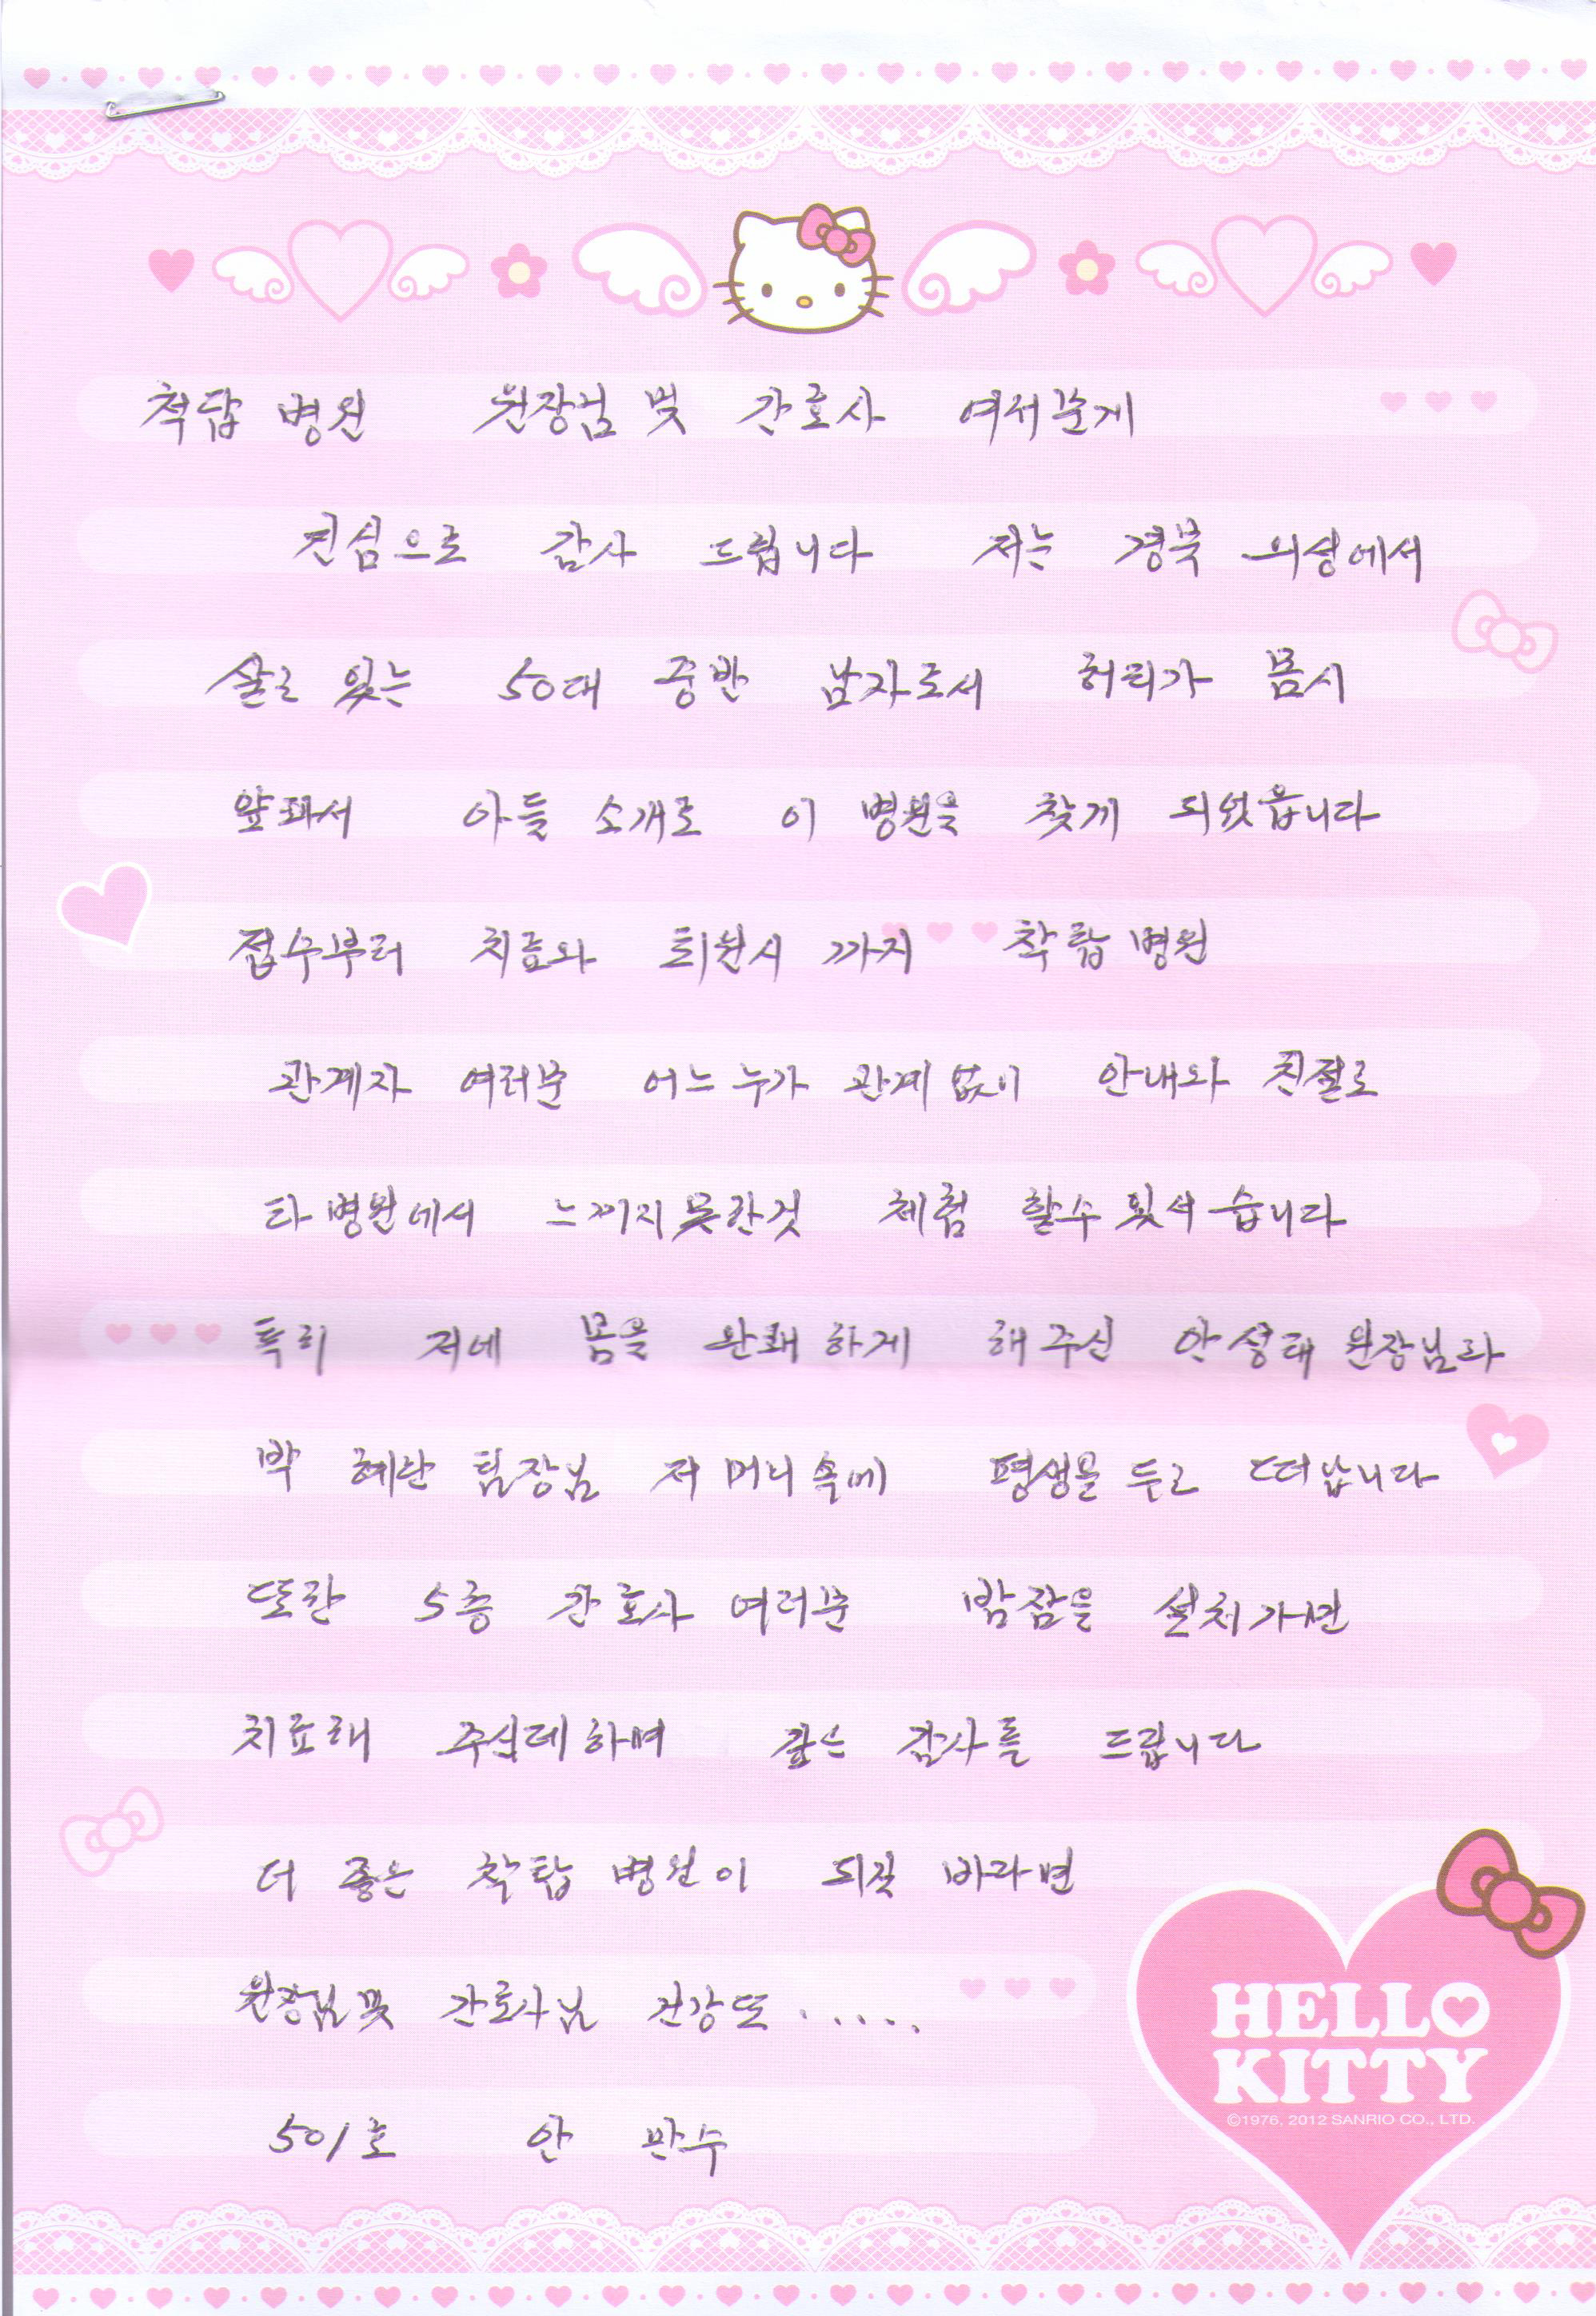 척탑 병원 원장님 및 간호사 여서분게
진심으로 감사 드립니다 저는 경북 의성에서
살고 있는 50대 중반 남자로서 허리가 몹시
앞퐈서 아들 소개로 이 병원을 찾게 되었읍니다
접수부터 치료와 퇴원시 까지 착탑 병원
관계자 여러분 어느 누가 관계 없이 안내와 친절로
타 병원에서 느끼지 못한것 체험 할수 있서 습니다
특히 저네 몸을 완쾌 하게 해 주신 안성태 원장님라
박 혜란 팀장님 저 머니 속에 평생을 두고 떠납니다
또한 5층 간호사 여러분 밤잠을 설치가면
치료해 주신데 하며 감사를 드립니다
더 좋은 착탑 병원이 되길 바라면
원장님 및 간호사님 건강도 . . . . . .
501호 안 만수
HELLO
KITTY
©1976, 2012 SANRIO CO., LTD.